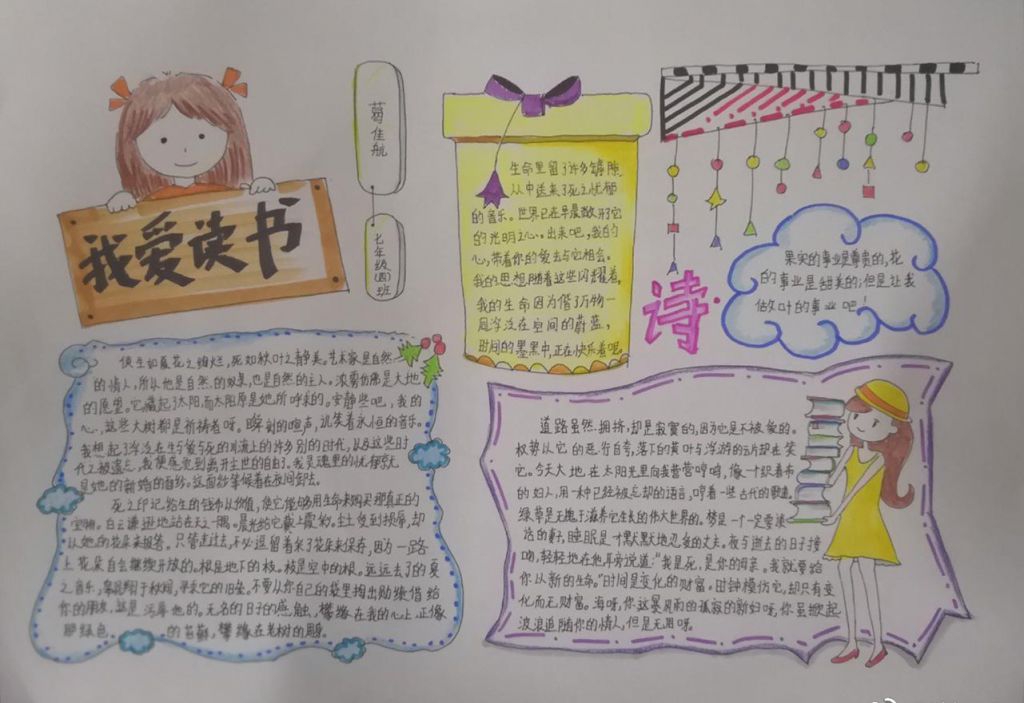 我爱读书
葛佳航
七年级(四)班
生命里留了许多罅隙,
从中送来了死之忧郁
的音乐。世界已在早晨敞开了它
的光明之心。出来吧,我的
心,带着你的爱去与它相会。
我的思想随着这些闪耀着,
我的生命因为借了万物一
同浮泛在空间的蔚蓝,
时间的墨黑中,正在快乐着呢。
诗
果实的事业是尊贵的,花
的事业是甜美的;但是让我
做叶的事业吧!
使生如夏花之绚烂,死如秋叶之静美。艺术家是自然
的情人,所以他是自然的奴隶,也是自然的主人。浓雾仿佛是大地
的愿望。它藏起了太阳而太阳原是她所呼求的。安静些吧,我的
心,这些大树都是祈祷者呀。瞬刻的喧声,讥笑着永恒的音乐。
我想起了浮泛在生与爱与死的川流上的许多别的时代,以及这些时
代之被遗忘,我便感觉到离开尘世的自由了。我灵魂里的忧郁
是她的新婚的面纱。这面纱等候着在夜间卸去。
死之印记给生的钱币以价值,使它能够用生命来购买那真正的
宝物。白云谦逊地站在天之一隅。晨光给它戴上霞彩。尘土受到损辱,却
以她的花朵来报答。只管走过去,不必逗留着采了花朵来保存,因为一路
上花朵自会继续开放的。根是地下的枝。枝是空中的根。远远去了的夏
之音乐,翱翔于秋间,寻求它的旧垒。不要从你自己的袋里掏出勋绩借给
你的朋友,这是污辱他的。无名的日子的感触,攀缘在我的心上,正像
那绿色的苔藓,攀缘在老树的周身。
道路虽然拥挤,却是寂寞的,因为它是不被爱的。
权势以它的恶行自夸,落下的黄叶与浮游的云片却在笑
它。今天大地在太阳光里向我营营哼鸣,像一个织着布
的妇人,用一种已经被忘却的语言,哼着一些古代的歌曲。
绿草是无愧于滋养它生长的伟大世界的。梦是一个一定要谈
话的妻子,睡眠是一个默默地忍受的丈夫。夜与逝去的日子接
吻,轻轻地在他耳旁说道:"我是死,是你的母亲。我就要给
你以新的生命。"时间是变化的财富。时钟模仿它,却只有变
化而无财富。海呀,你这暴风雨的孤寂的新妇呀,你虽掀起
波浪追随你的情人,但是无用呀